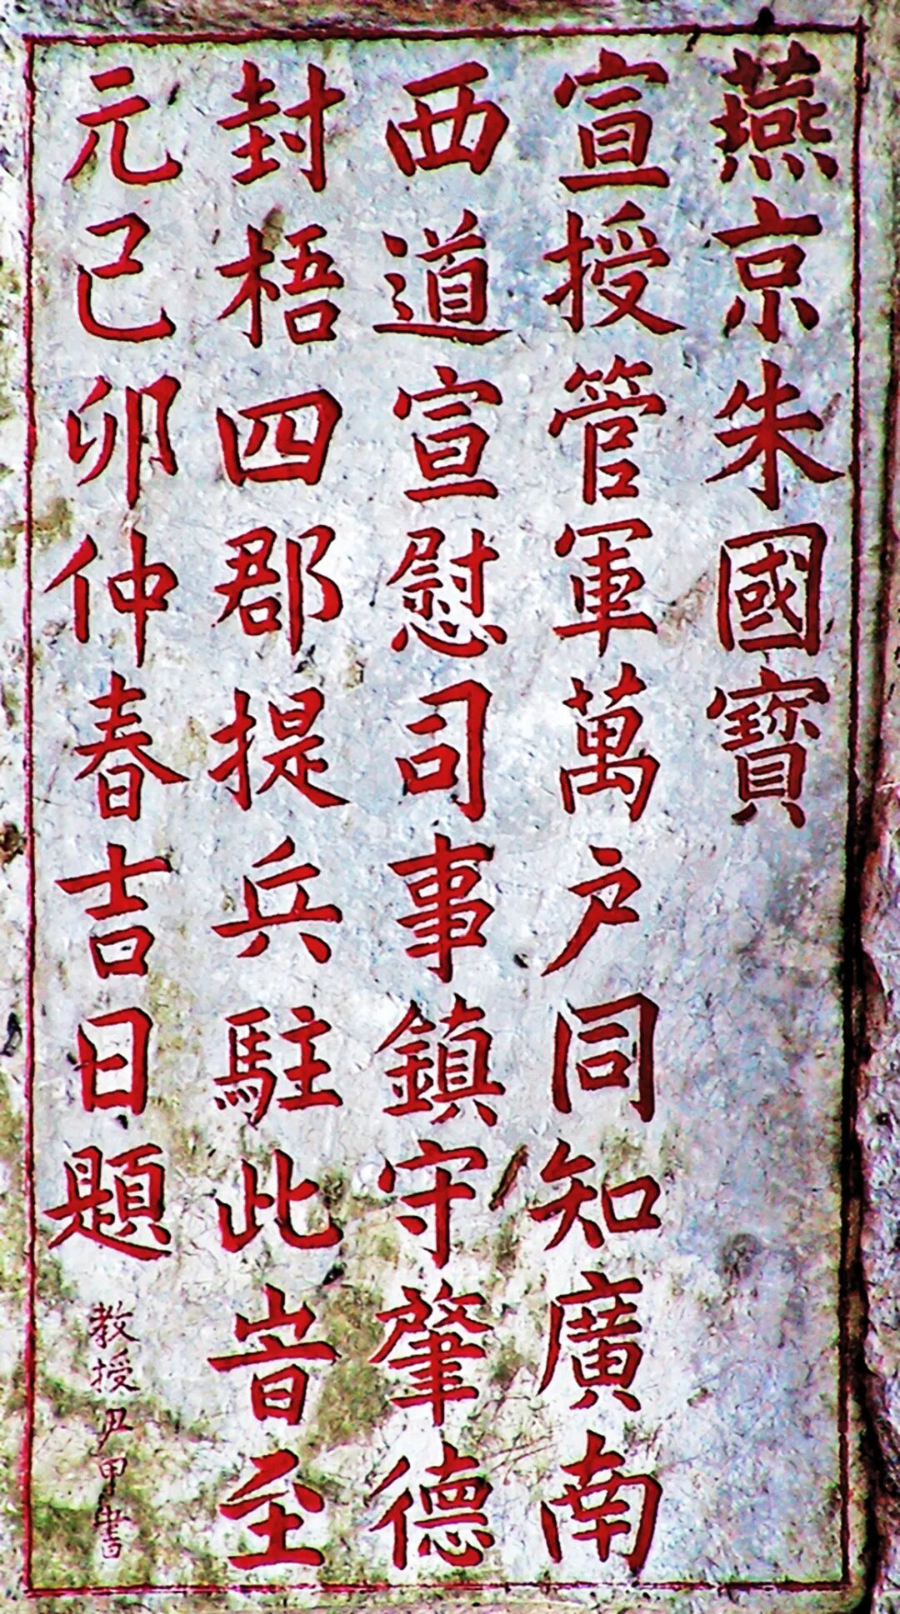 燕京朱國寶
宣授管軍萬户同知廣南
西道宣慰司事鎮守肇德
封梧四郡提兵駐此旹至
元己卯仲春吉日題
教授尹甲書